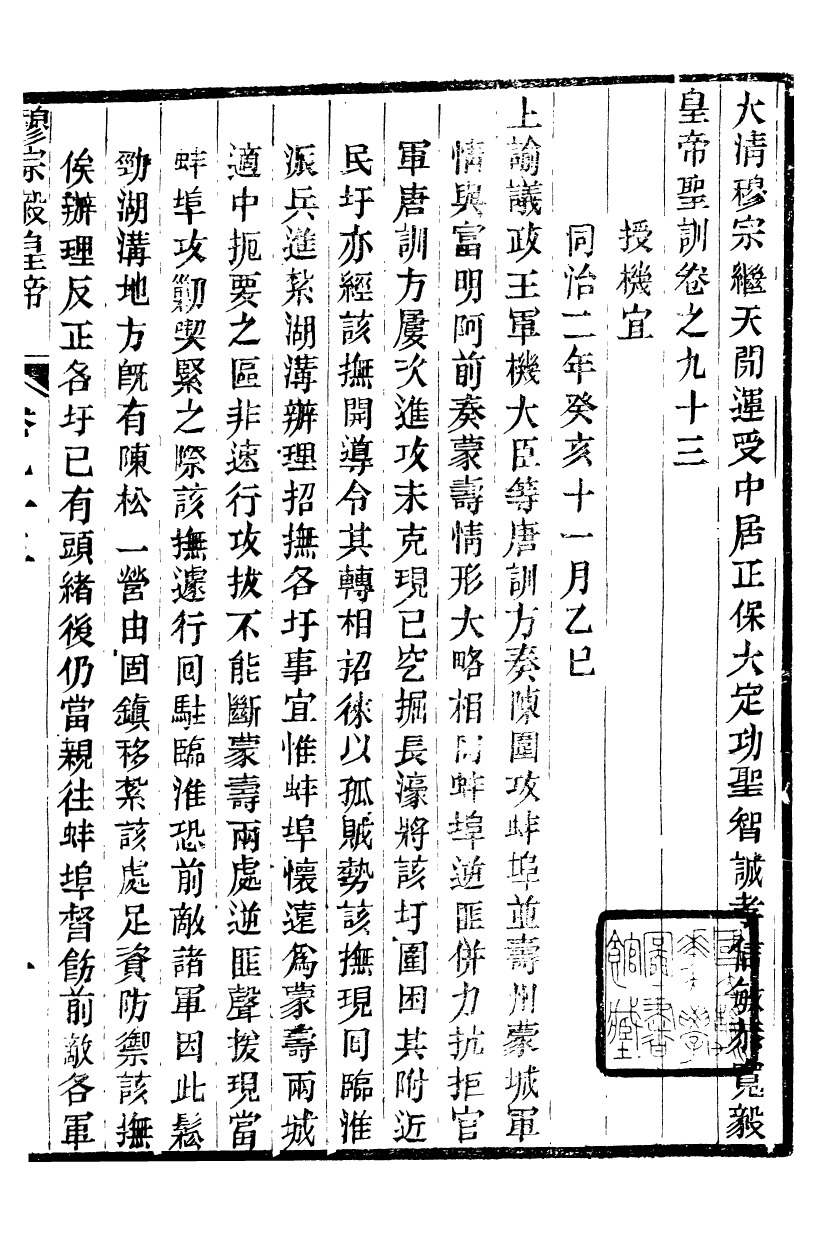 大清穆宗繼天開運受中居正保大定功聖智誠孝信敏恭寬毅
皇帝聖訓卷之九十三
授機宜
同治二年癸亥十一月乙巳
上諭議政王軍機大臣等唐訓方奏陳圍攻蚌埠並壽州蒙城軍
情與富明阿前奏蒙壽情形大略相同蚌埠逆匪併力抗拒官
軍唐訓方屢次進攻未克現已空掘長濠將該圩圍困其附近
民圩亦經該撫開導令其轉相詔徠以孤賊勢該撫現囘臨淮
派兵進紮湖溝辦理招撫各圩事宜惟蚌埠懷遠為蒙壽兩城
適中扼要之區非速行攻拔不能斷蒙壽兩處逆匪聲援現當
蚌埠攻勦喫緊之際該撫遽行囘駐臨淮恐前敵諸軍因此鬆
勁湖溝地方旣有陳松一營由固鎮移紮該處足資防禦該撫
俟辦理反正各圩已有頭緒後仍當親往蚌埠督飭前敵各軍
穆宗毅皇帝
國立
大學
圖書
館藏